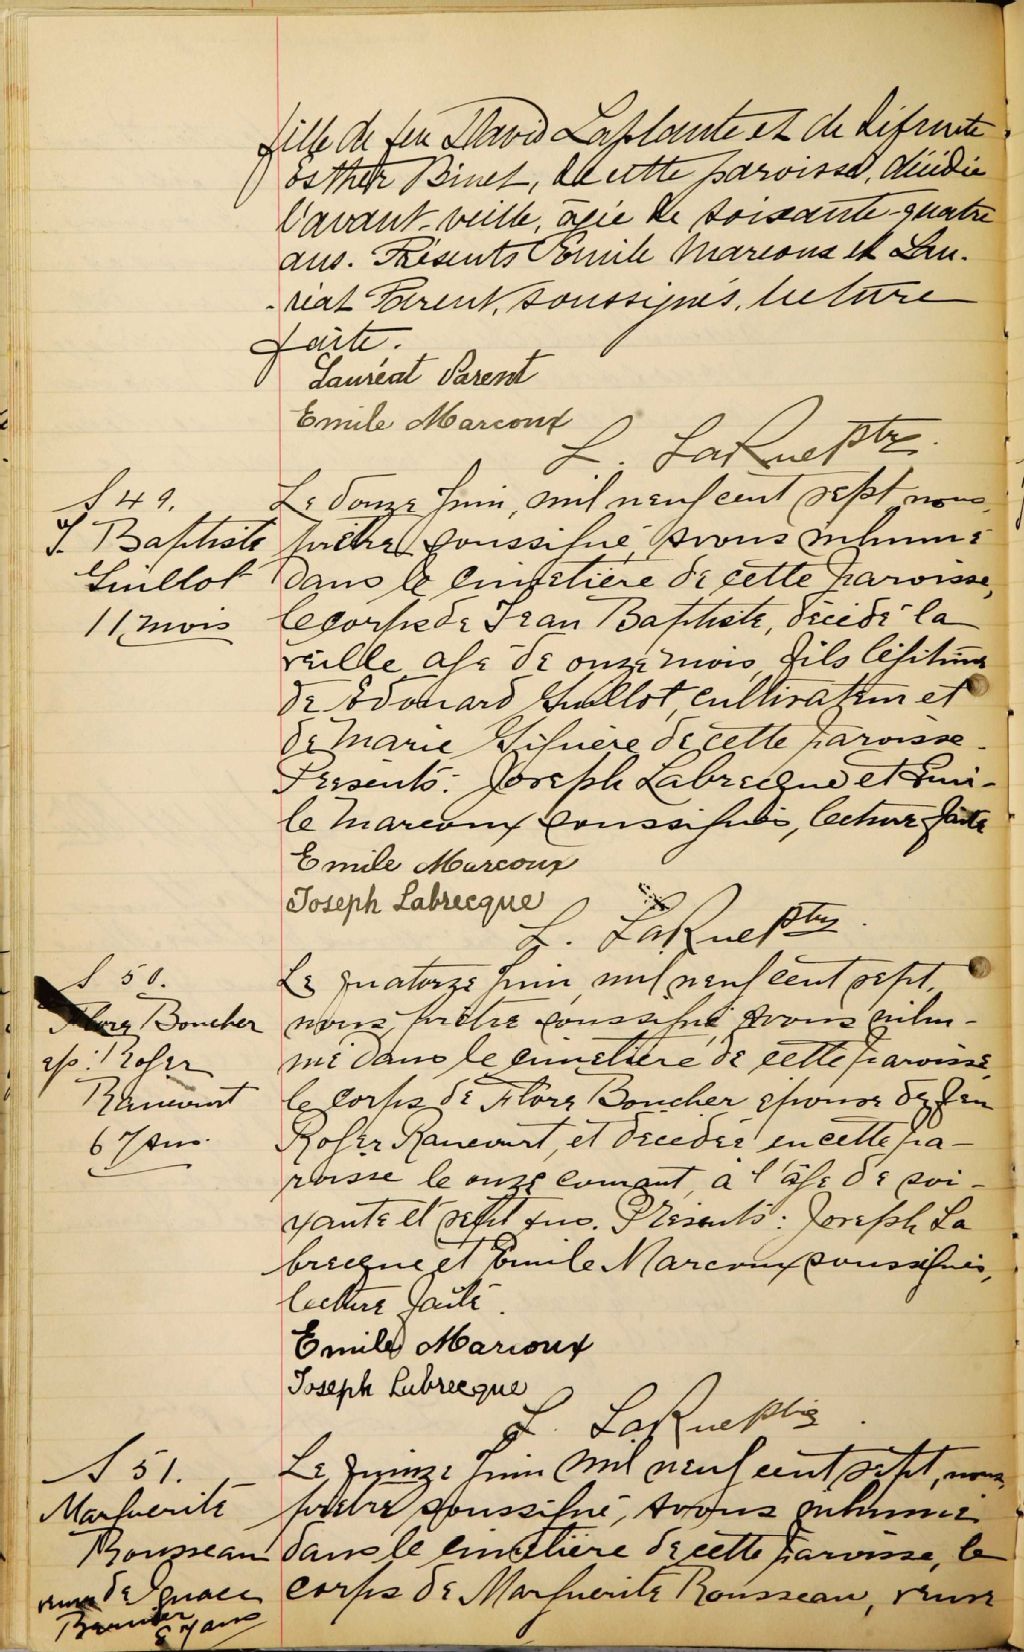 fille de feu David Laplante et de défunte
Esther Binet, de cette paroisse, décédée
l'avant-veille, âgée de soixante-quatre
ans. Présents Emile Marcoux et Lau-
-réat Parent, soussignés, lecture
faite.
Lauréat Parent
Emile Marcoux
L. LaRue ptre.
S 49.
J. Baptiste
Guillot
11 mois
Le douze Juin, mil neuf cent sept, nous,
prêtre soussigné, avons inhumé
dans le cimetière de cette paroisse,
le corps de Jean Baptiste, décédé la
veille, agé de onze mois, fils légitime
de Edouard Guillot, cultivateur et
de Marie Giguère de cette paroisse.
Présents: Joseph Labrecque et Emi-
le Marcoux soussignés, lecture faite
Emile Marcoux
Joseph Labrecque
L. LaRue ptre.
S 50.
Flore Boucher
ép: Roger
Rancourt
67 ans.
Le quatorze Juin, mil neuf cent sept,
nous, prêtre soussigné avons inhu-
mé dans le cimetière de cette paroisse,
le corps de Flore Boucher épouse de feu
Roger Rancourt, et décédée en cette pa-
roisse le onze courant, à l'âge de soi-
xante et sept ans. Présents: Joseph La
brecque et Emile Marcoux soussignés,
lecture faite.
Emile Marcoux
Joseph Labrecque
L. LaRue ptre.
S 51.
Marguerite
Rousseau
veuve de Ignace
Bernier
87 ans
Le quinze Juin mil neuf cent sept, nous,
prêtre soussigné, avons inhumé
dans le cimetière de cette paroisse, le
corps de Marguerite Rousseau, veuve